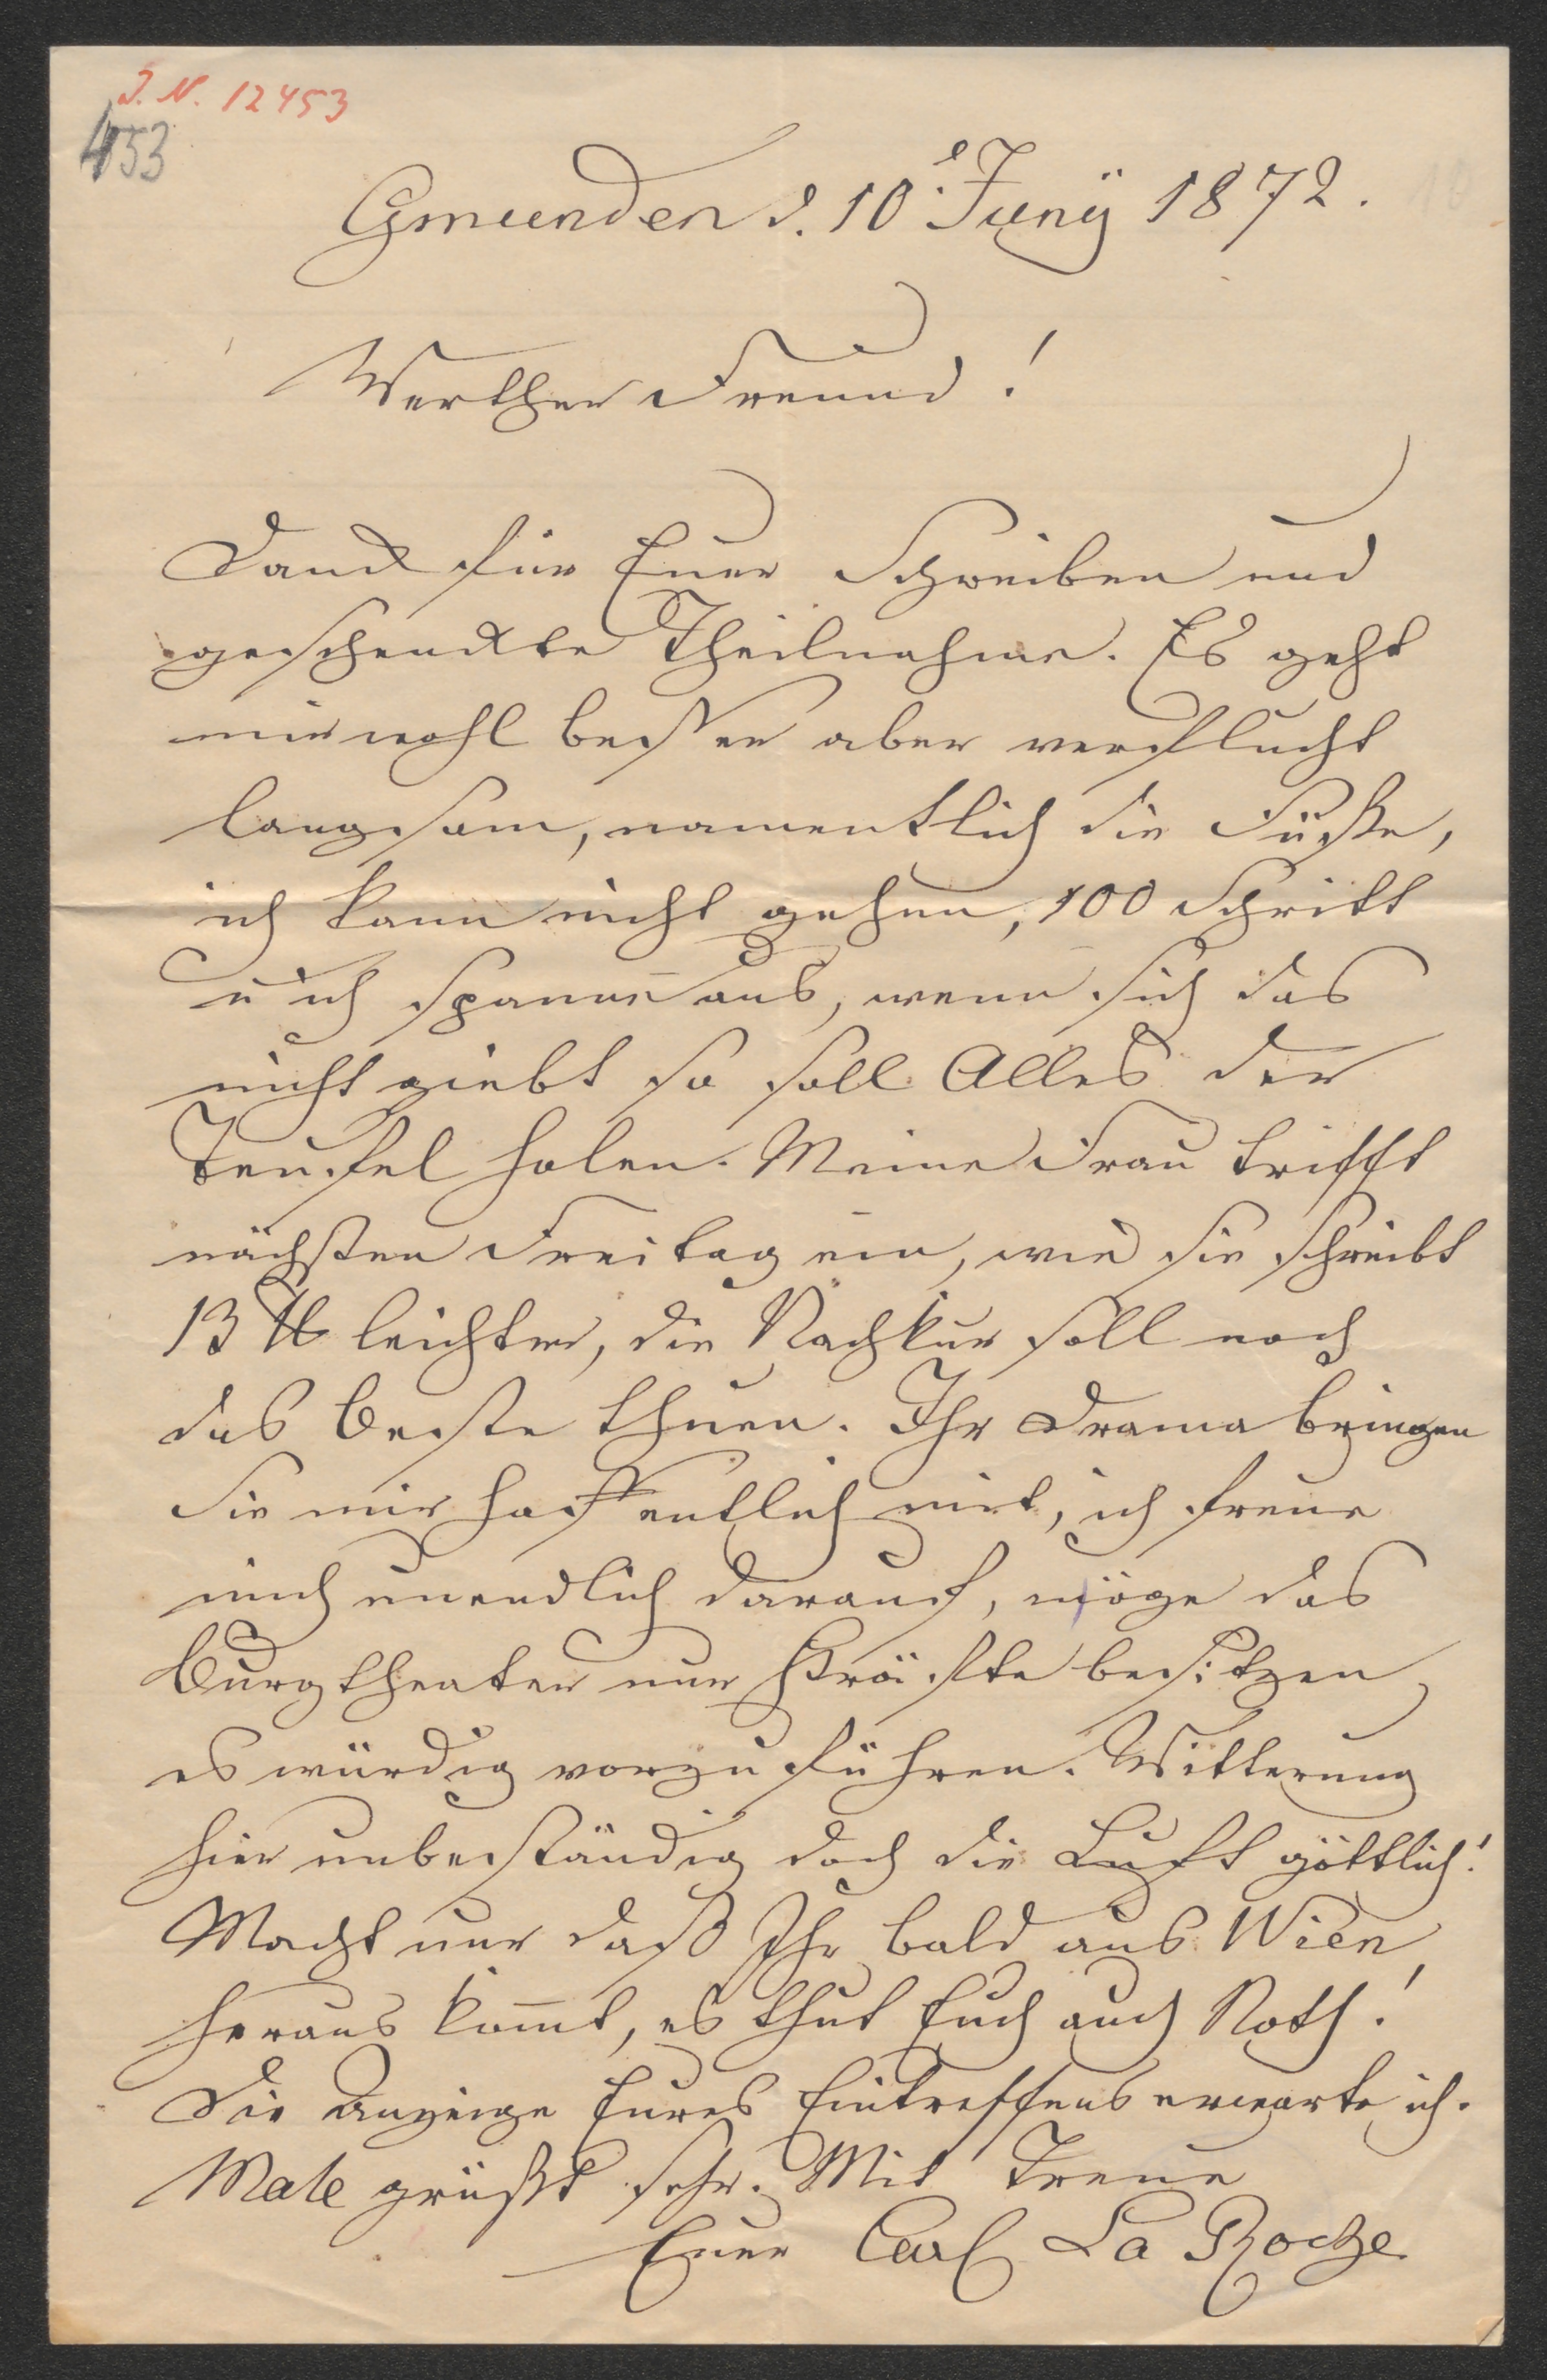 J. N. 12453
453
Gmunden d. 10t Juny 1872.
Werther Freund!
Dank für Euer Schreiben und
geschenkte Theilnahme. Es geht
mir wohl besser aber verflucht
langsam, namentlich die Füße,
ich kann nicht gehen, 100 Schritt
u ich spanne aus, wenn sich das
nicht giebt so soll Alles der
Teufel holen. Meine Frau trifft
nächsten Freitag ein, wie sie schreibt
13 ℔ leichter, die Nachkur soll noch
das beste thuen. Ihr Drama bringen
Sie mir hoffentlich mit, ich freue
mich unendlich darauf, möge das
Burgtheater nur Kräfte besitzen
es würdig vorzuführen. Witterung
hier unbeständig doch die Luft göttlich!
Macht nur daß Ihr bald aus Wien
heraus kom̅t, es thut Euch auch Noth!
Die Anzeige Eures Eintreffens erwarte ich.
Male grüßt sehr. Mit Treue
Euer Carl La Roche